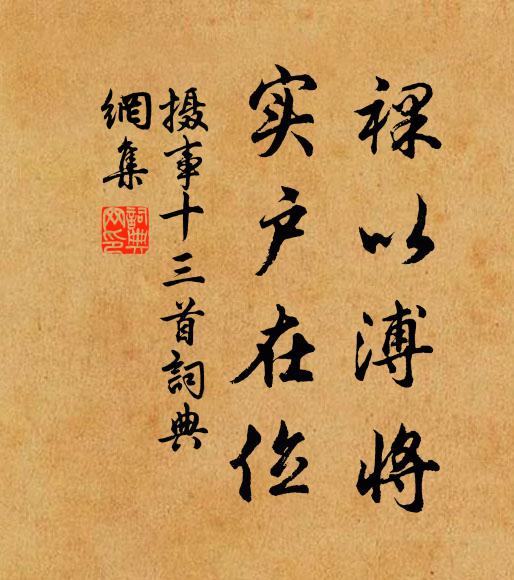 祼以溥将
实户在位
摄事十三首詞典
網集
詞典
网印